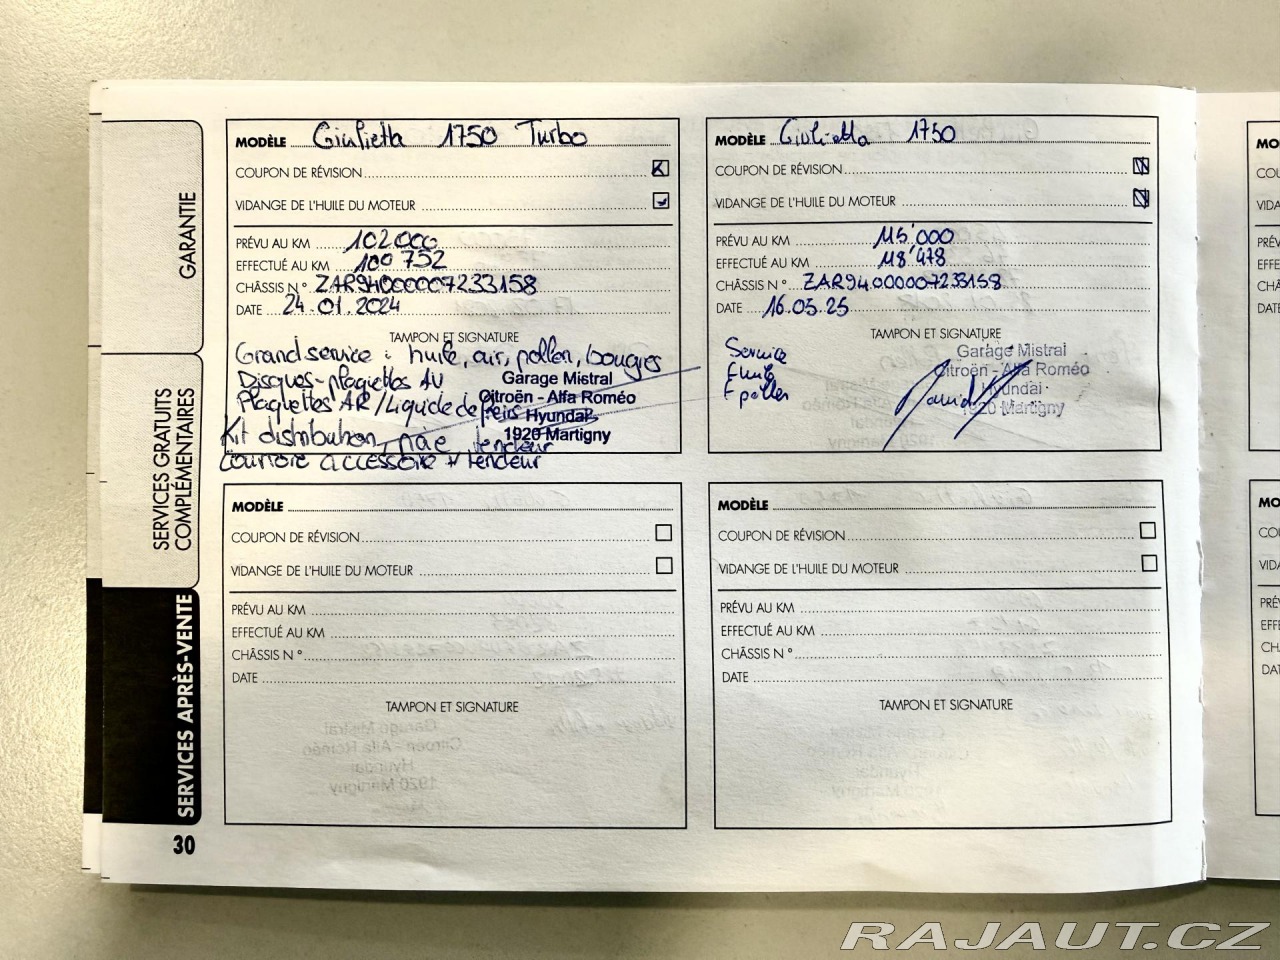 GARANTIE
SERVICES GRATUITS
COMPLÉMENTAIRES
SERVICES APRÈS-VENTE
30
MODÈLE Giulietta 1750 Turbo
COUPON DE RÉVISION
VIDANGE DE L'HUILE DU MOTEUR
PRÉVU AU KM 102000
EFFECTUÉ AU KM 100 752
CHÂSSIS N° ZAR94000007233158
DATE 24.01.2024
TAMPON ET SIGNATURE
Grand service : huile, air, pollen, bougies
Disques-plaquettes AV
Plaquettes AR/Liquide de freins
Kit distribution, tendeur
Courroie accessoire + tendeur
Garage Mistral
Citroën - Alfa Roméo
Hyundai
1920 Martigny
MODÈLE Giulietta 1750
COUPON DE RÉVISION
VIDANGE DE L'HUILE DU MOTEUR
PRÉVU AU KM 115'000
EFFECTUÉ AU KM 118'478
CHÂSSIS N° ZAR94000007233158
DATE 16.05.25
TAMPON ET SIGNATURE
Service
Fhuile
Fpollen
Garage Mistral
Citroën - Alfa Roméo
Hyundai
1920 Martigny
MODÈLE
COUPON DE RÉVISION
VIDANGE DE L'HUILE DU MOTEUR
PRÉVU AU KM
EFFECTUÉ AU KM
CHÂSSIS N°
DATE
TAMPON ET SIGNATURE
MODÈLE
COUPON DE RÉVISION
VIDANGE DE L'HUILE DU MOTEUR
PRÉVU AU KM
EFFECTUÉ AU KM
CHÂSSIS N°
DATE
TAMPON ET SIGNATURE
RAJAUT.CZ